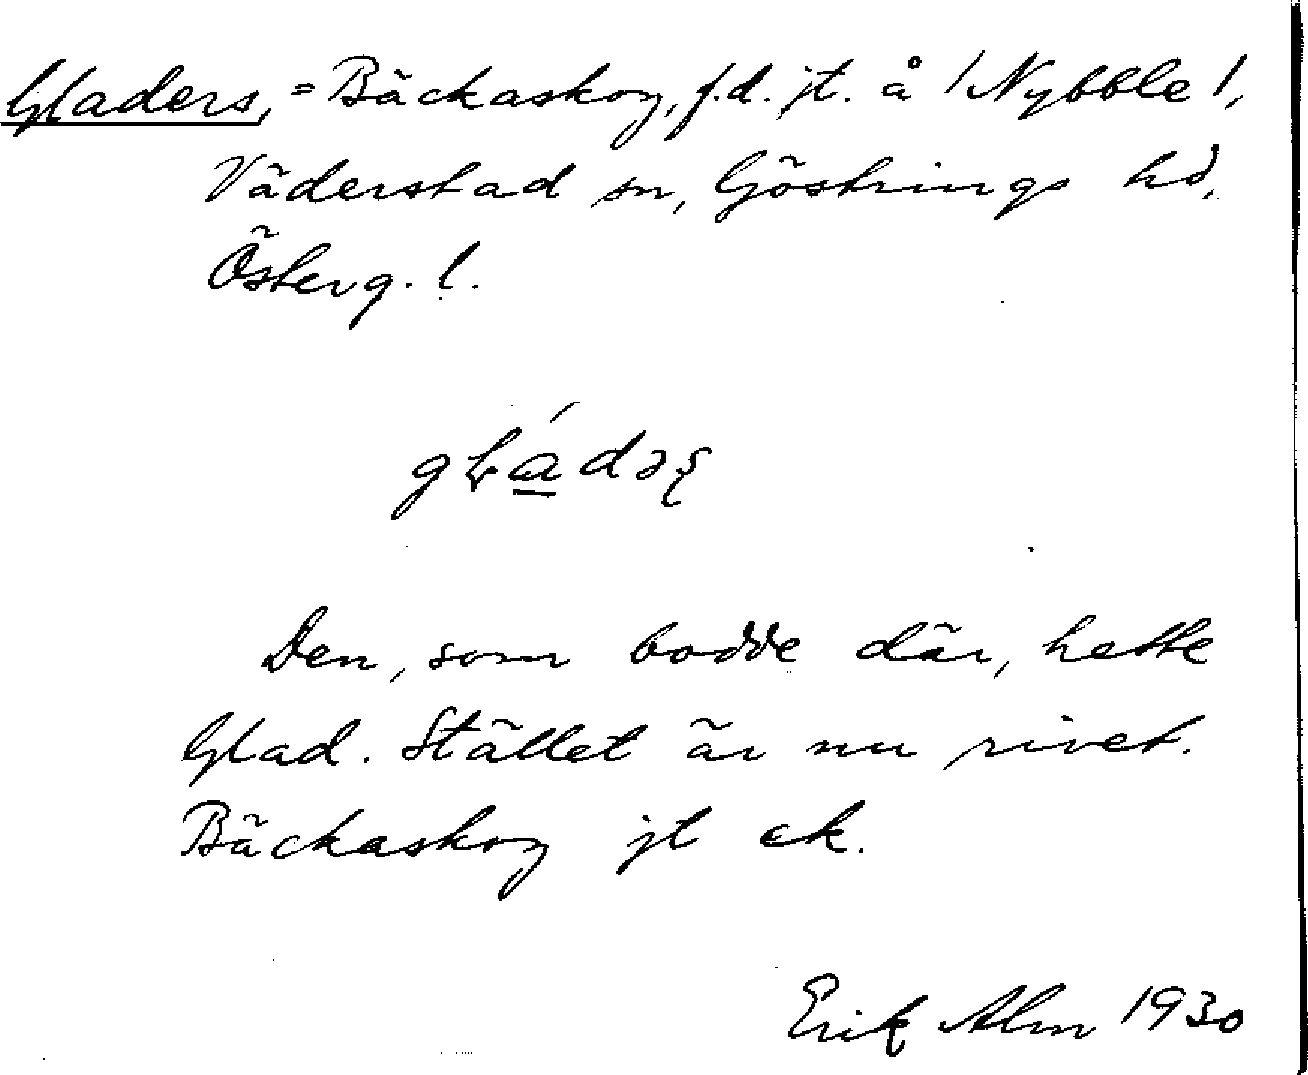 Gladers, = Bäckaskog, f.d. jt. å /Nybble/,
Väderstad sn, Göstrings hd,
Österg. l.
Den, som bodde där, hette
Glad. Stället är nu rivet.
Bäckaskog jt ek.
Erik Alm 1930